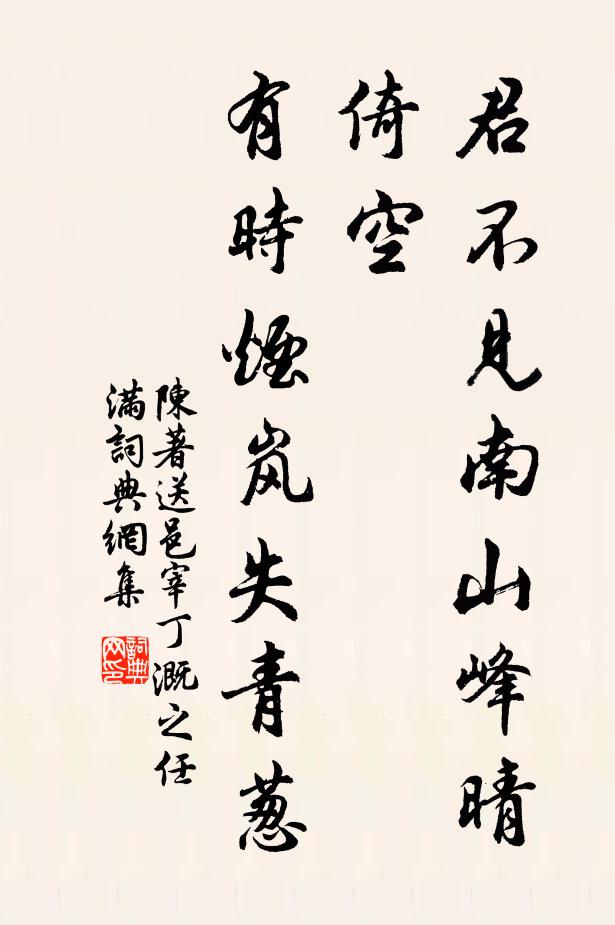 君不見南山峰晴
倚空
有時煙岚失青葱
陳著送邑宰丁溉之任
滿詞典網集
詞典
网印